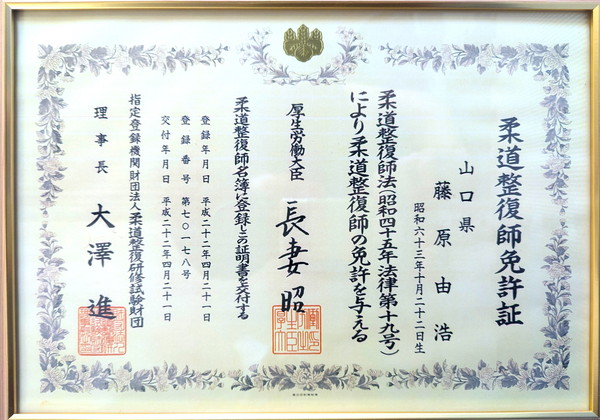 柔道整復師免許証
山口県
藤原由浩
昭和六十三年十月二十二日生
柔道整復師法（昭和四十五年法律第十九号）
により柔道整復師の免許を与える
厚生労働大臣 長妻昭
柔道整復師名簿に登録しこの証明書を交付する
登録年月日 平成二十二年四月二十一日
登録番号 第七〇一七八号
交付年月日 平成二十二年四月二十一日
指定登録機関財団法人柔道整復研修試験財団
理事長 大澤進